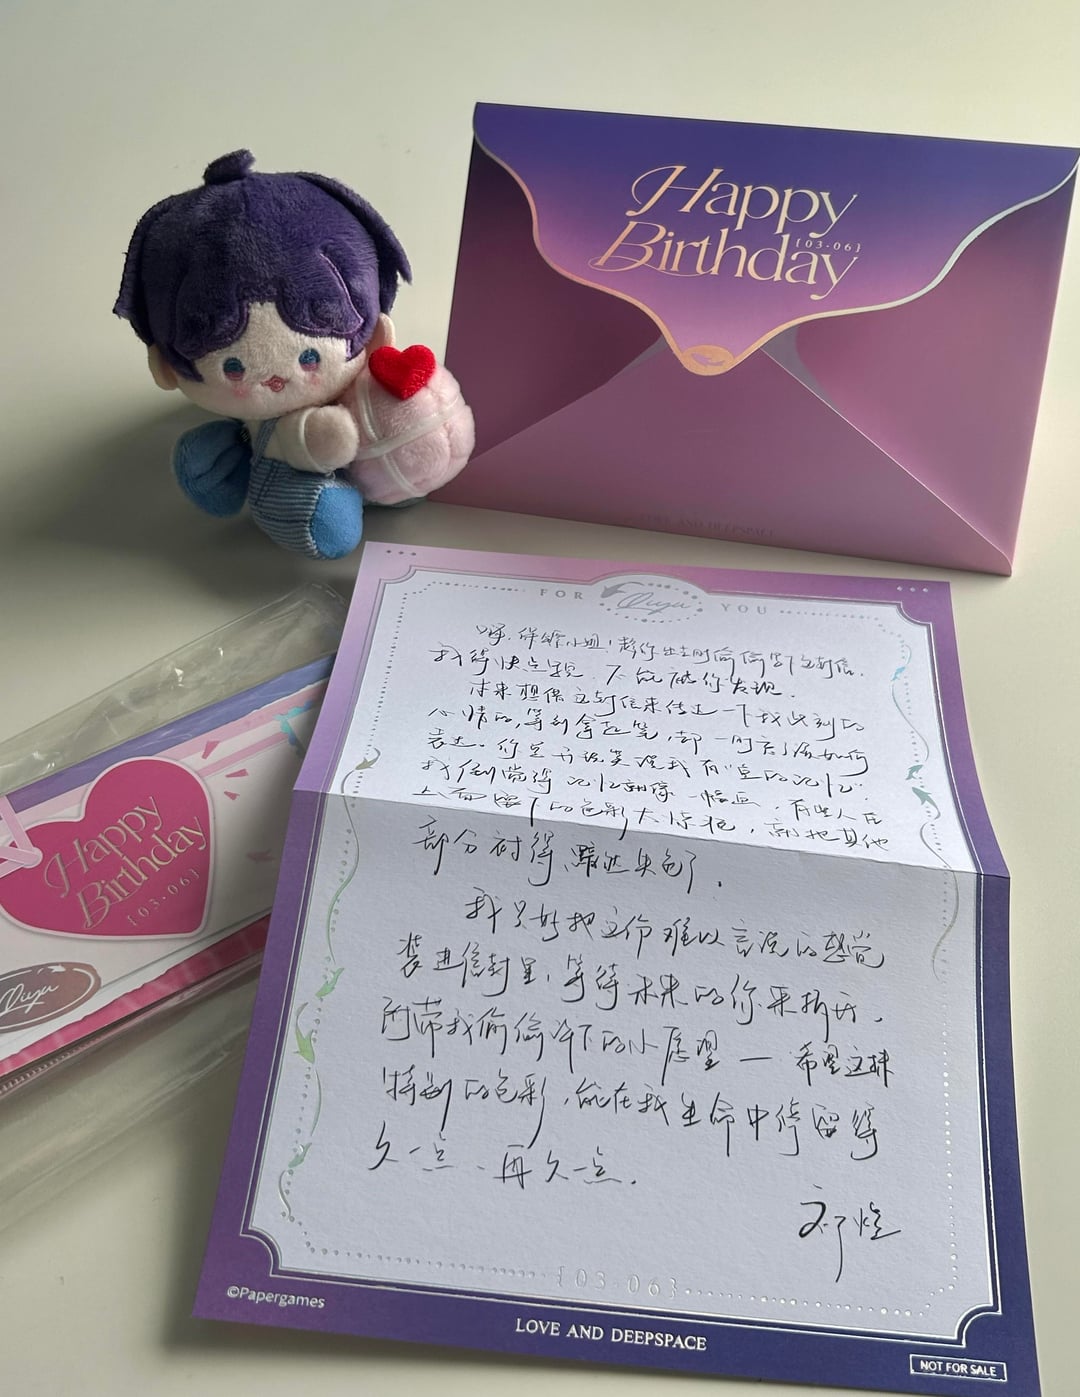 Happy
Birthday
{03·06}
LOVE AND DEEPSPACE
FOR Qiyu YOU
嗨，保镖小姐！趁你出去时偷偷写下这封信，
我得快点写，不能被你发现。
本来想借这封信来传达一下我此刻的
心情的，等到拿起笔，却一时忘了该如何
表达。你总开玩笑说我有“鱼的记忆”，
我倒觉得记忆就像一幅画，有些人在
上面留下的色彩太浓艳，就把其他
部分衬得黯然失色了。
我只好把这份难以言说的感觉
装进信封里，等待未来的你来拆开。
附带我偷偷许下的小愿望——希望这抹
特别的色彩，能在我生命中停留得
久一点、再久一点。
祁煜
{03·06}
©Papergames
LOVE AND DEEPSPACE
NOT FOR SALE
Happy
Birthday
{03·06}
Qiyu